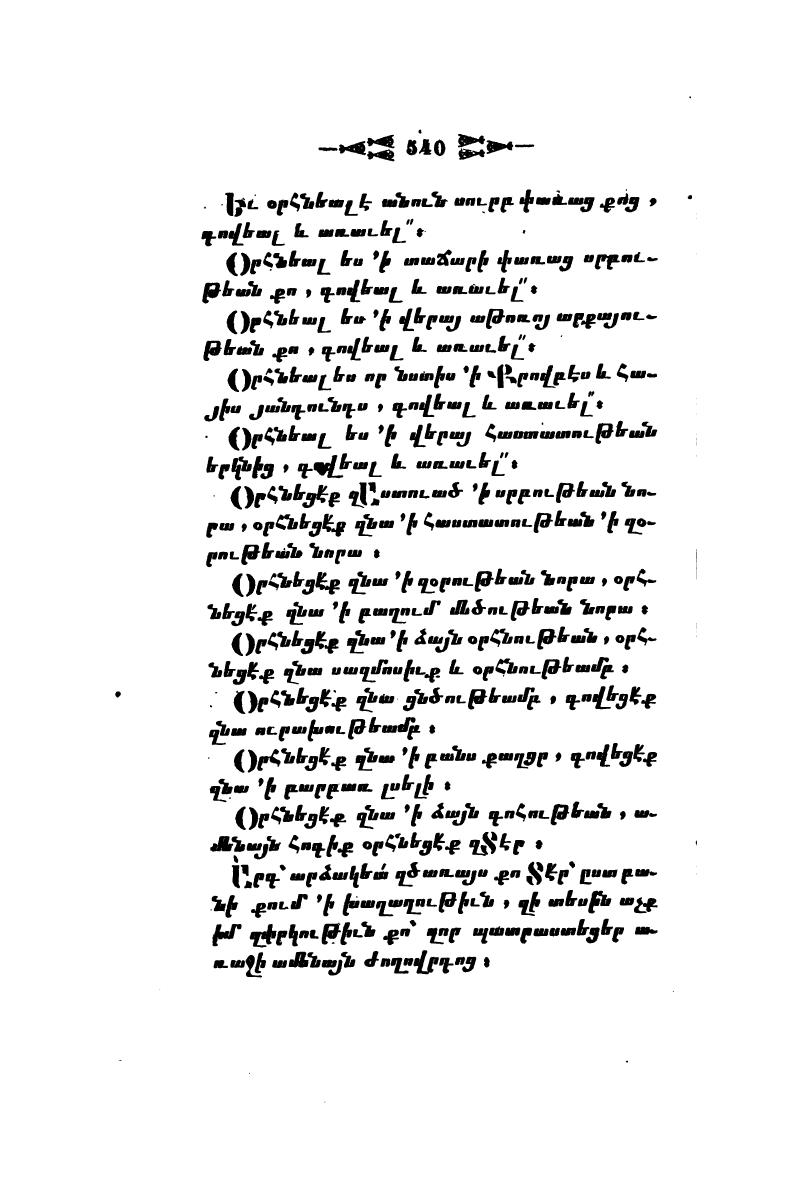 540
Եւ օրհնեալ է անուն սուրբ փառաց քոց ,
գովեալ և առաւել՛՛ ։
Օրհնեալ ես ՚ի տաճարի փառաց սրբու-
թեան քո , գովեալ և առաւել՛՛ ։
Օրհնեալ ես ՚ի վերայ աթոռոյ արքայու-
թեան քո , գովեալ և առաւել՛՛ ։
Օրհնեալ ես որ նստիս ՚ի Քրովբէս և հա-
յիս յանդունդս , գովեալ և առաւել՛՛ ։
Օրհնեալ ես ՚ի վերայ հաստատութեան
երկնից , գովեալ և առաւել՛՛ ։
Օրհնեցէք զԱստուած ՚ի սրբութեան նո-
րա , օրհնեցէք զնա ՚ի հաստատութեան ՚ի զօ-
րութեան նորա ։
Օրհնեցէք զնա ՚ի զօրութեան նորա , օրհ-
նեցէք զնա ՚ի բազում մեծութեան նորա ։
Օրհնեցէք զնա ՚ի ձայն օրհնութեան , օրհ-
նեցէք զնա սաղմոսիւք և օրհնութեամբ ։
Օրհնեցէք զնա ցնծութեամբ , գովեցէք
զնա ուրախութեամբ ։
Օրհնեցէք զնա ՚ի բանս քաղցր , գովեցէք
զնա ՚ի բարբառ լսելի ։
Օրհնեցէք զնա ՚ի ձայն գոհութեան , ա-
մենայն հոգիք օրհնեցէք զՏէր ։
Արդ՝ արձակեա՛ զծառայս քո Տէր՝ ըստ բա-
նի քում ՚ի խաղաղութիւն , զի տեսին աչք
իմ զփրկութիւն քո՝ զոր պատրաստեցեր ա-
ռաջի ամենայն ժողովրդոց ։